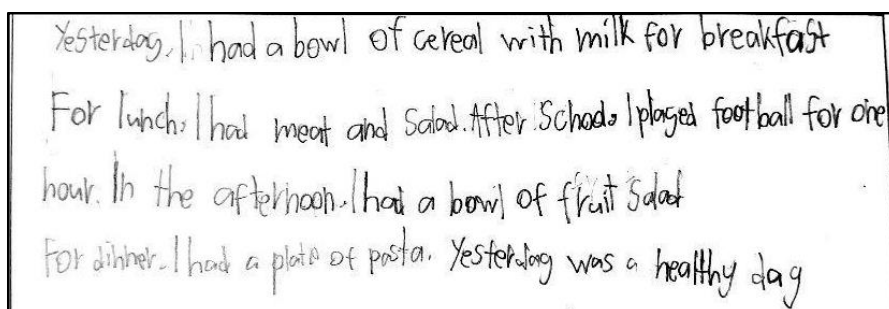 Yesterday, I had a bowl of cereal with milk for breakfast
For lunch, I had meat and salad. After School, I played football for one
hour. In the afternoon, I had a bowl of fruit Salad
For dinner, I had a plate of pasta. Yesterday was a healthy day